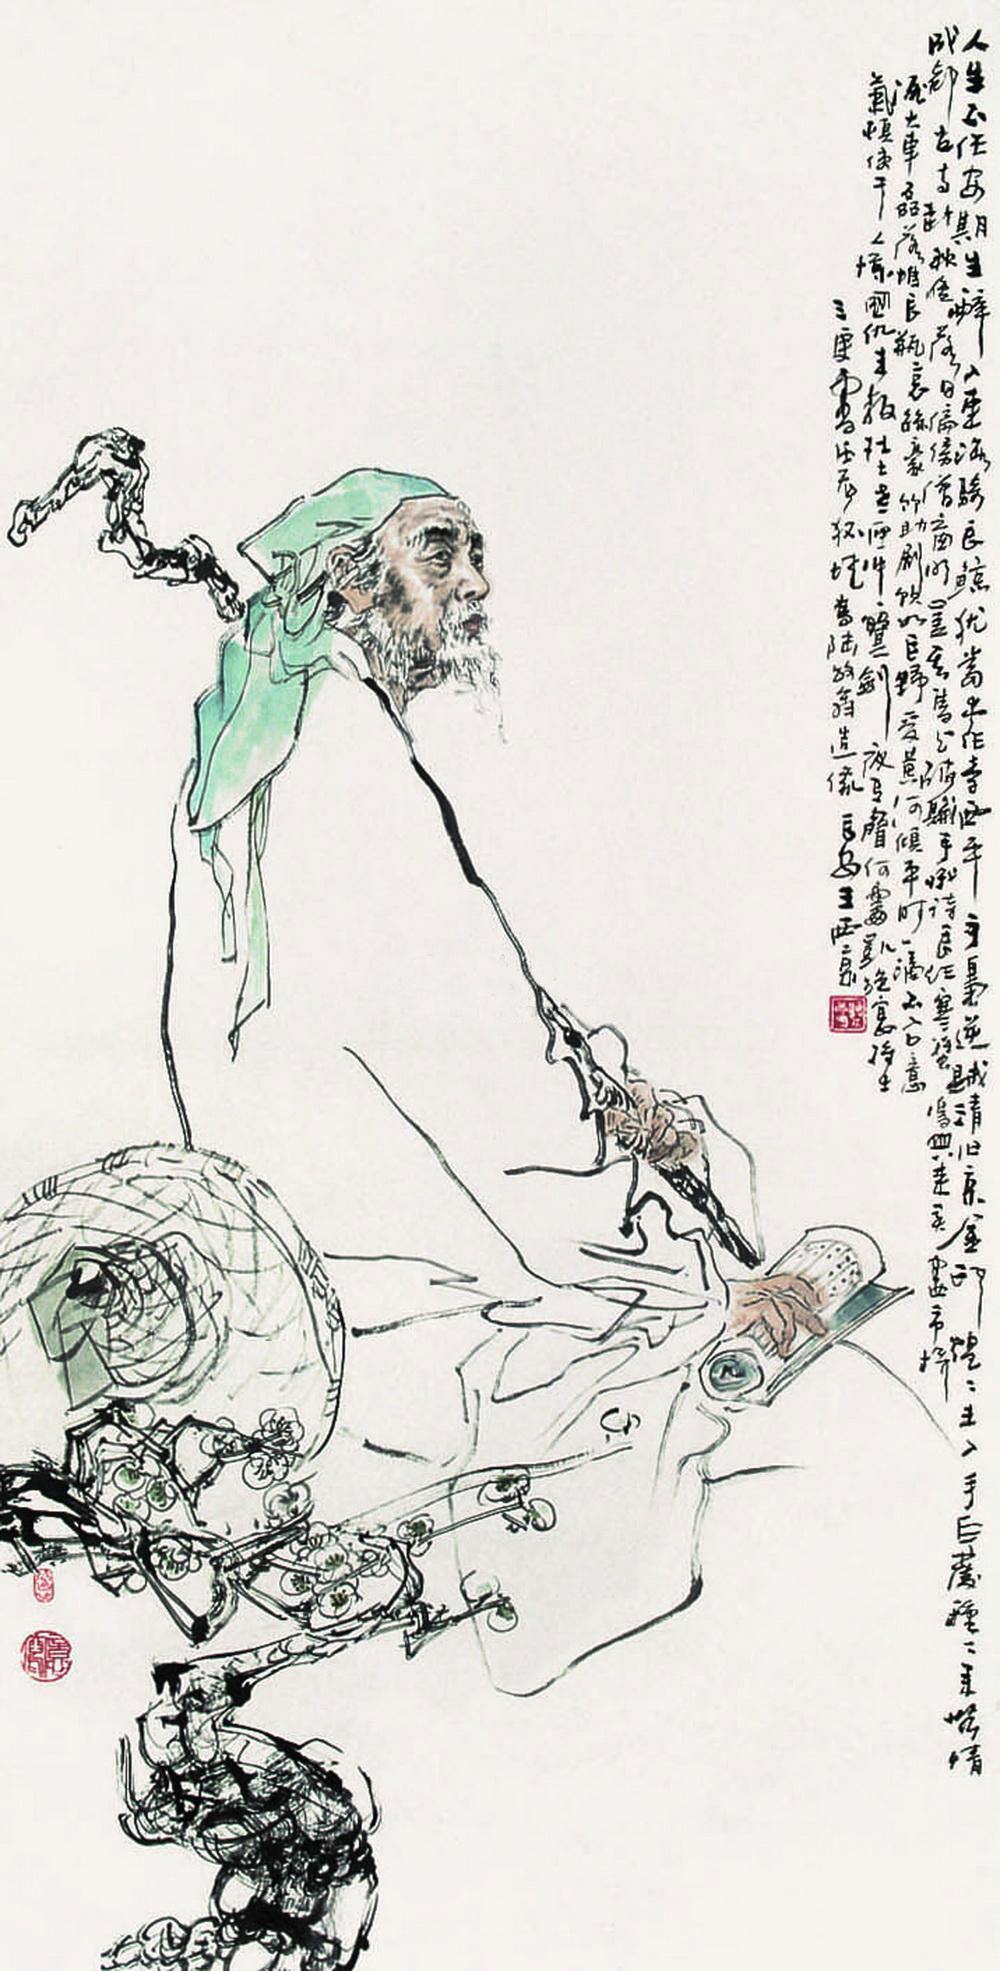 人生不作安期生醉入東海騎長鯨犹當出作李西平手梟逆賊清旧京金印煌々未入手白髮種々来無情
成都古寺卧秋晚落日偏傍僧窗明豈其馬上破賊手哦詩長作寒螿鳴興来買盡市橋
酒大車磊落堆長瓶哀絲豪竹助劇飲如巨野受黄河傾平時一滴不入口意
氣頓使千人驚國仇未報壮士老匣中寶劍夜有聲何當凱旋宴將士
三更雪壓飛狐城為陸放翁造像長安王西京